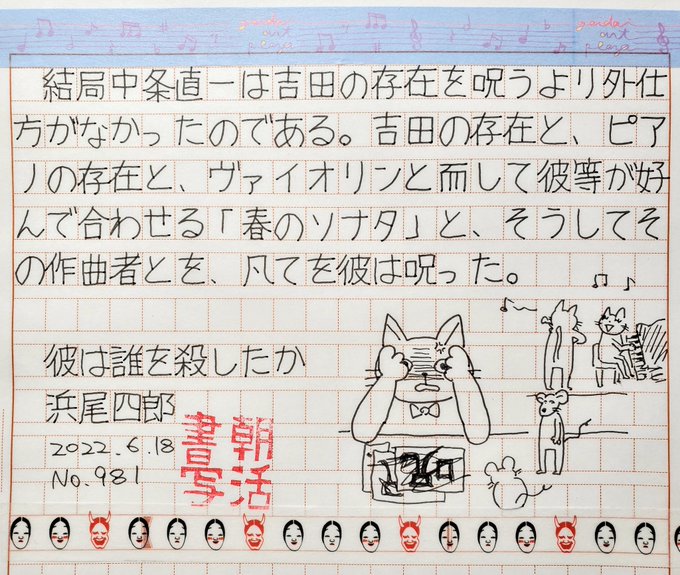 garden
art
pensa
結局中条直一は吉田の存在を呪うより外仕
方がなかったのである。吉田の存在と、ピア
ノの存在と、ヴァイオリンと而して彼等が好
んで合わせる「春のソナタ」と、そうしてそ
の作曲者とを、凡てを彼は呪った。
彼は誰を殺したか
浜尾四郎
2022.6.18
No.981
朝活
書写